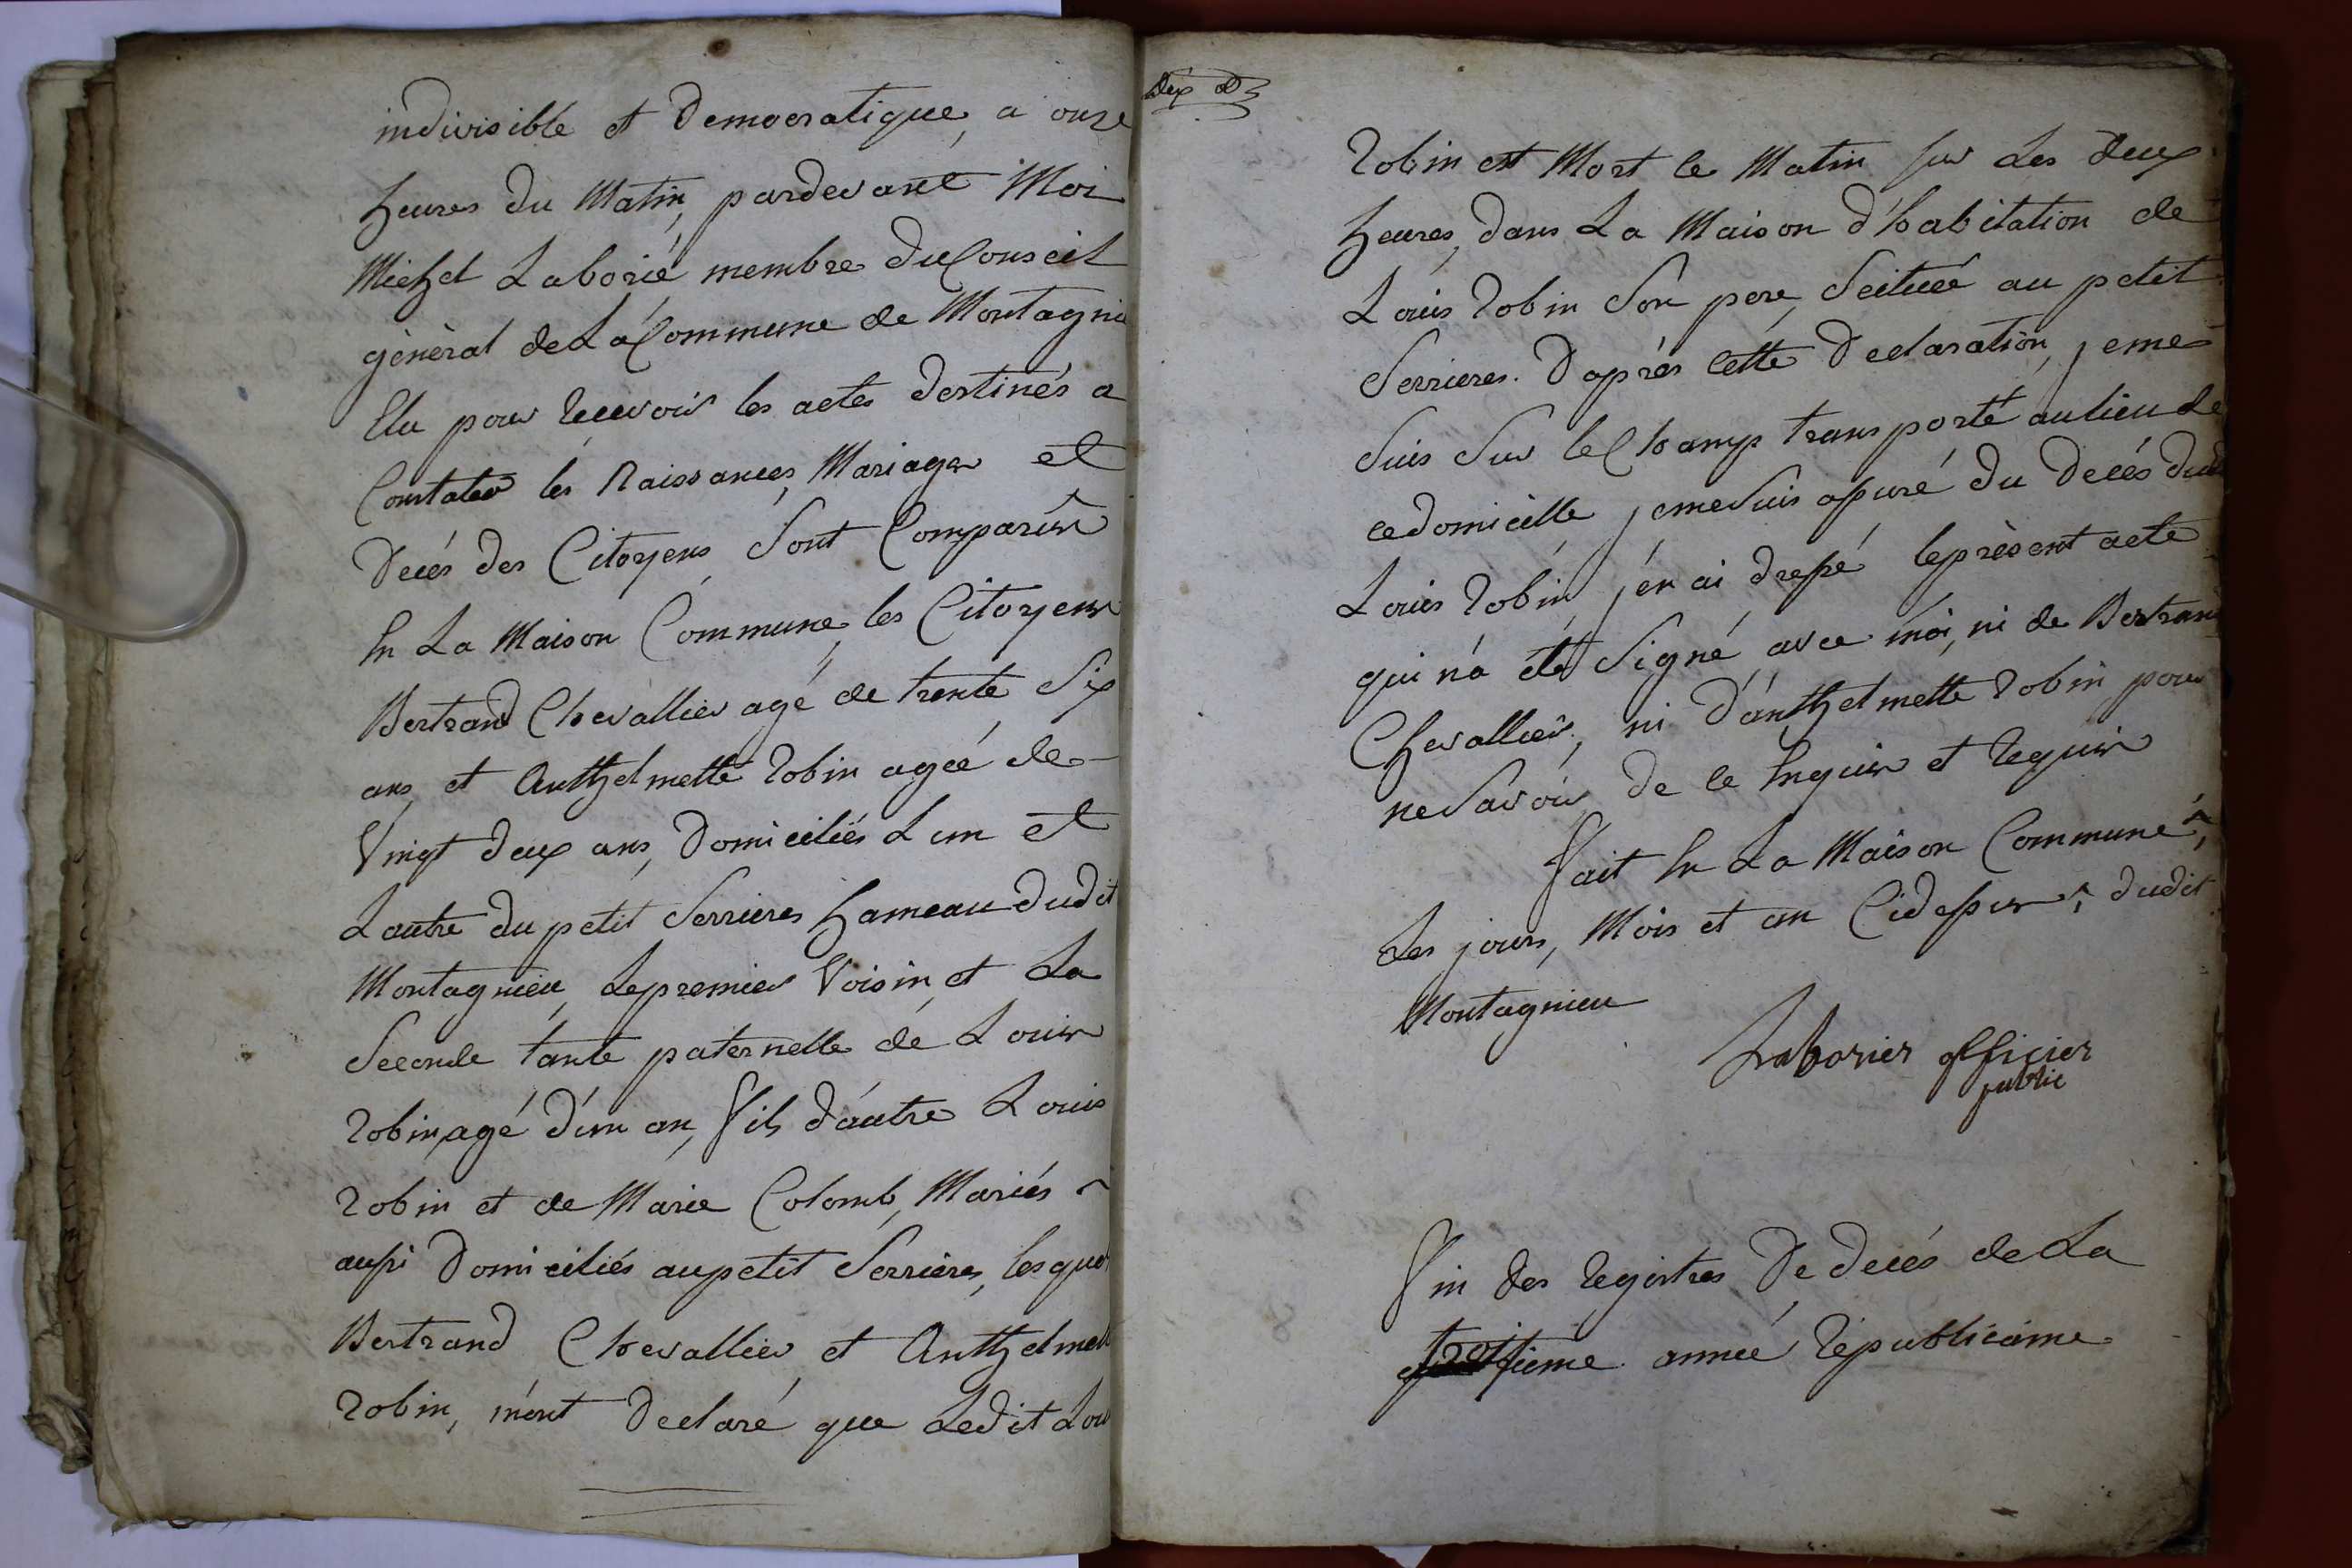 indivisible et Democratique, a onze
heures du Matin, pardevant Moi
Michel Laborié membre du Conseil
général de La Commune de Montagnie
Elu pour Recevoir les actes destinés a
Constater les Naissances, Mariages et
Decés des Citoyens, Sont Comparus
En La Maison Commune, les Citoyens
Bertrand Chevallier agé de trente Six
ans, et Anthelmette Robin agée de
Vingt deux ans, Domiciliés L'un et
L'autre du petit Serrieres hameau dudit
Montagnieu, Le premier Voisin, et La
Seconde tante paternelle de Louis
Robin, agé d'un an, Fils d'autre Louis
Robin et de Marie Colomb, Mariés
aussi Domiciliés au petit Serrieres, lesquels
Bertrand Chevallier, et Anthelmett
Robin, m'ont Declaré que Ledit Lou
Robin est Mort le Matin sur Les deux
heures, dans La Maison d'habitation de
Louis Robin Son pere, Scituée au petit
Serrieres. D'après Cette Declaration, je me
Suis Sur le Champ transporté au lieu de
ce domicille, je me Suis assuré du Decés dud
Louis Robin, j'en ai dressé le présent acte
qui n'a été Signé avec moi, ni de Bertrand
Chevallier, ni d'anthelmette Robin pour
ne Savoir de ce Enquis et Requis
Fait En La Maison Commune,
Les jours, Mois et an Cidessus, dudit
Montagnieu
Laborier officier
public
Fin des Registres De decés de La
troisieme année Républicaine